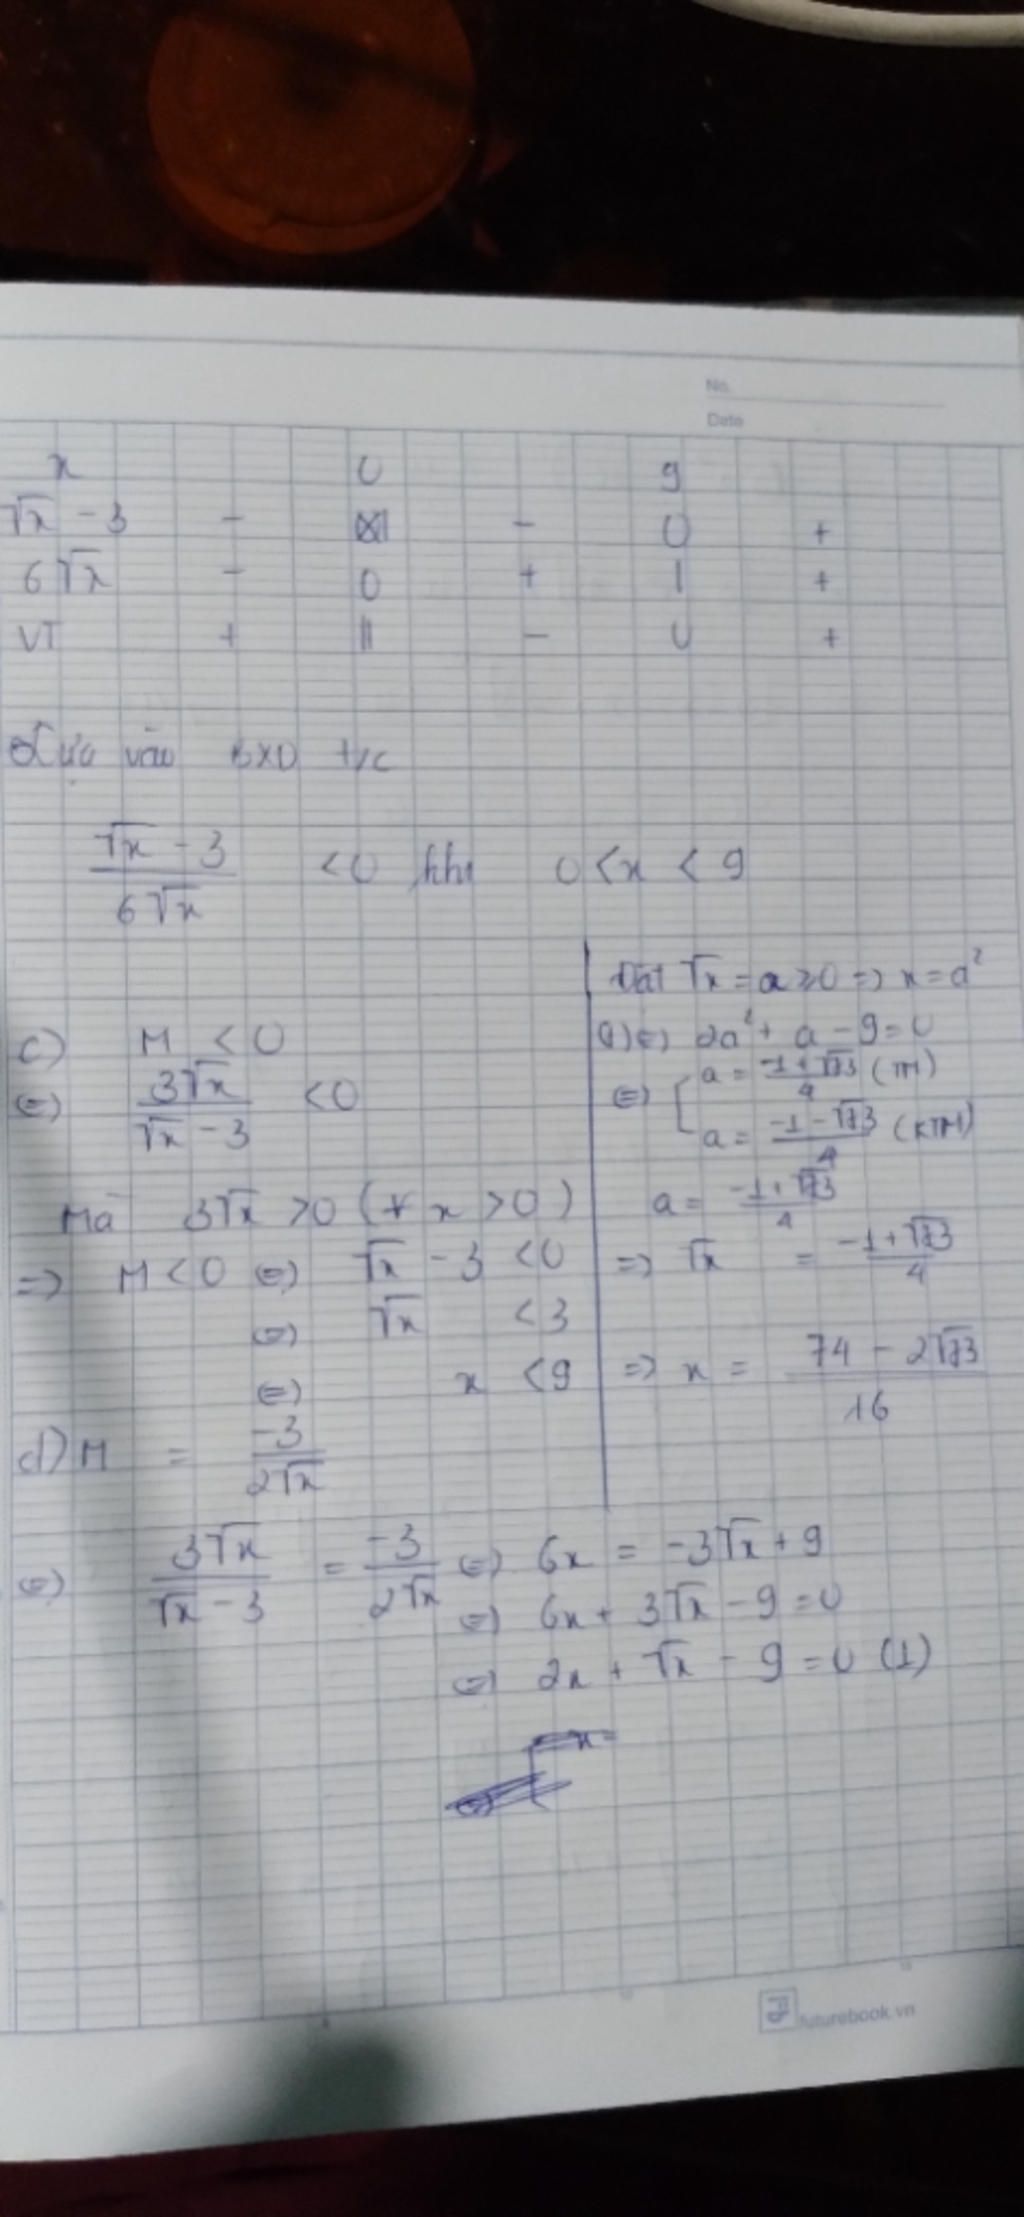 No.
Date
x 0 9
√x - 3 - - 0 +
6√x - 0 + | +
VT + || - 0 +
vào BXD t/c
(√x - 3)/(6√x) <0 khi 0 < x < 9
c) M < 0
⇔) 3√x/(√x - 3) < 0
Mà 3√x >0 (∀ x >0)
=> M < 0 ⇔) √x - 3 < 0
⇔) √x < 3
⇔) x < 9
Đặt √x = a ≥ 0 => x = a²
(1)⇔) 2a² + a - 9 = 0
⇔) [ a = (-1 + √73)/4 (TM)
a = (-1 - √73)/4 (KTM)
a = (-1 + √73)/4
=> √x = (-1 + √73)/4
=> x = (74 - 2√73)/16
d) M = -3/(2√x)
⇔) 3√x/(√x - 3) = -3/(2√x) ⇔) 6x = -3√x + 9
⇔) 6x + 3√x - 9 = 0
⇔) 2x + √x - 9 = 0 (1)
futurebook.vn